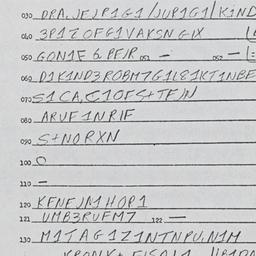 030 DPA.JFJP1G1/JUP1G1/K1ND
040 3P1ZOFG1VAKSNG1X
050 GON1E6.PFJR 051 — 052 —
060 D1K1ND3ROBM7G1L81KT1NBE
070 S1CA,C1OFS+TFJN
080 ARUF1NRIF
090 S+NORXN
100 O
110 —
120 KFNFJM1HOP1
121 UMB3RUFM7 122 —
130 M1TAG1Z1NTNPU.N1M